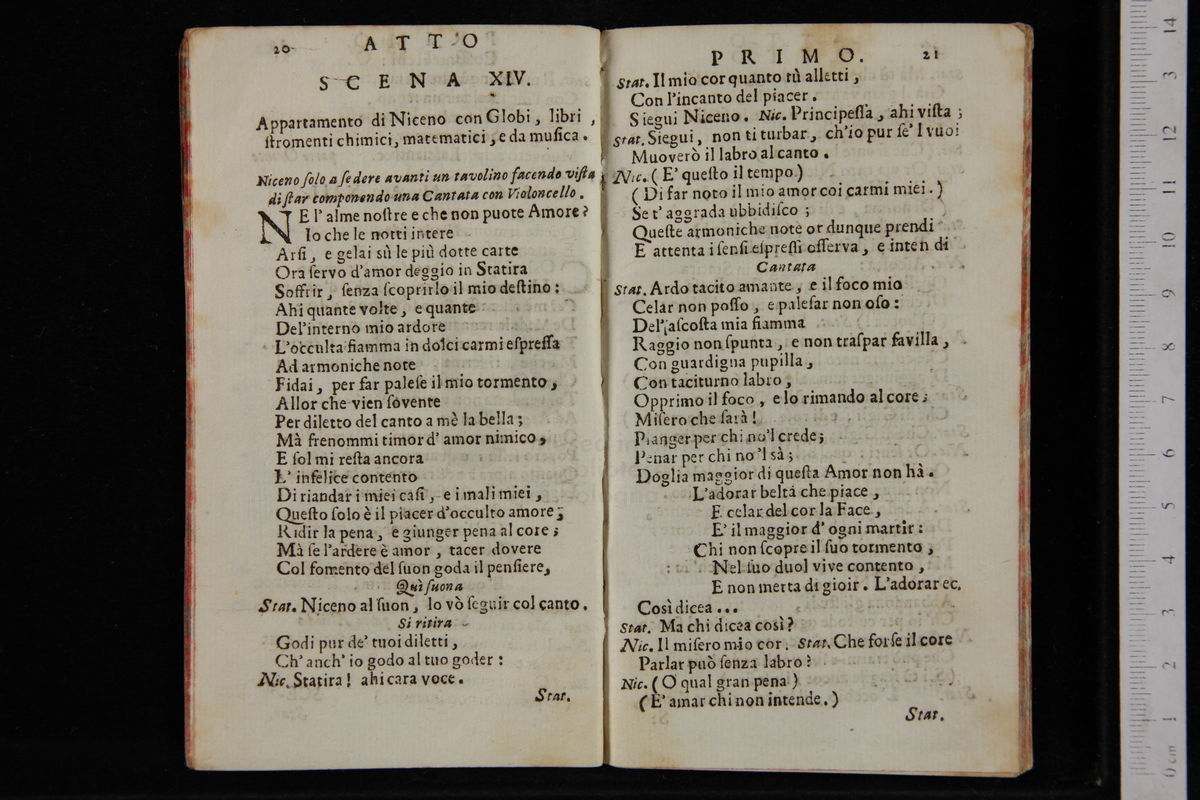 20 ATTO
SCENA XIV.
Appartamento di Niceno con Globi, libri,
ſtromenti chimici, matematici, e da muſica.
Niceno ſolo a ſedere avanti un tavolino facendo viſta
di ſtar componendo una Cantata con Violoncello.
NE l'alme noſtre e che non puote Amore?
Io che le notti intere
Arſi, e gelai sù le più dotte carte
Ora ſervo d'amor deggio in Statira
Soffrir, ſenza ſcoprirlo il mio deſtino:
Ahi quante volte, e quante
Del'interno mio ardore
L'occulta fiamma in dolci carmi eſpreſſa
Ad armoniche note
Fidai, per far paleſe il mio tormento,
Allor che vien ſovente
Per diletto del canto a mè la bella;
Mà frenommi timor d'amor nimico,
E ſol mi reſta ancora
L'infelice contento
Di riandar i miei caſi, e i mali miei,
Queſto ſolo è il piacer d'occulto amore;
Ridir la pena, e giunger pena al core;
Mà ſe l'ardere è amor, tacer dovere
Col fomento del ſuon goda il penſiere,
Quì ſuona
Stat. Niceno al ſuon, Io vò ſeguir col canto.
Si ritira
Godi pur de' tuoi diletti,
Ch' anch' io godo al tuo goder:
Nic. Statira! ahi cara voce.
Stat.
PRIMO. 21
Stat. Il mio cor quanto tù alletti,
Con l'incanto del piacer.
Siegui Niceno. Nic. Principeſſa, ahi viſta;
Stat. Siegui, non ti turbar, ch'io pur ſe'l vuoi
Muoverò il labro al canto.
Nic. (E' queſto il tempo)
(Di far noto il mio amor coi carmi miei.)
Se t'aggrada ubbidiſco;
Queſte armoniche note or dunque prendi
E attenta i ſenſi eſpreſſi oſſerva, e inten di
Cantata
Stat. Ardo tacito amante, e il foco mio
Celar non poſſo, e paleſar non oſo:
Del'aſcoſta mia fiamma
Raggio non ſpunta, e non traſpar favilla,
Con guardigna pupilla,
Con taciturno labro,
Opprimo il foco, e lo rimando al core;
Miſero che ſarà!
Pianger per chi no'l crede;
Penar per chi no'l sà;
Doglia maggior di queſta Amor non hà.
L'adorar beltá che piace,
E celar del cor la Face,
E' il maggior d'ogni martir:
Chi non ſcopre il ſuo tormento,
Nel ſuo duol vive contento,
E non merta di gioir. L'adorar ec.
Così dicea...
Stat. Ma chi dicea così?
Nic. Il miſero mio cor. Stat. Che forſe il core
Parlar può ſenza labro?
Nic. (O qual gran pena)
(E' amar chi non intende.)
Stat.
14
3
12
11
10
9
8
7
6
5
4
3
2
1
0 cm